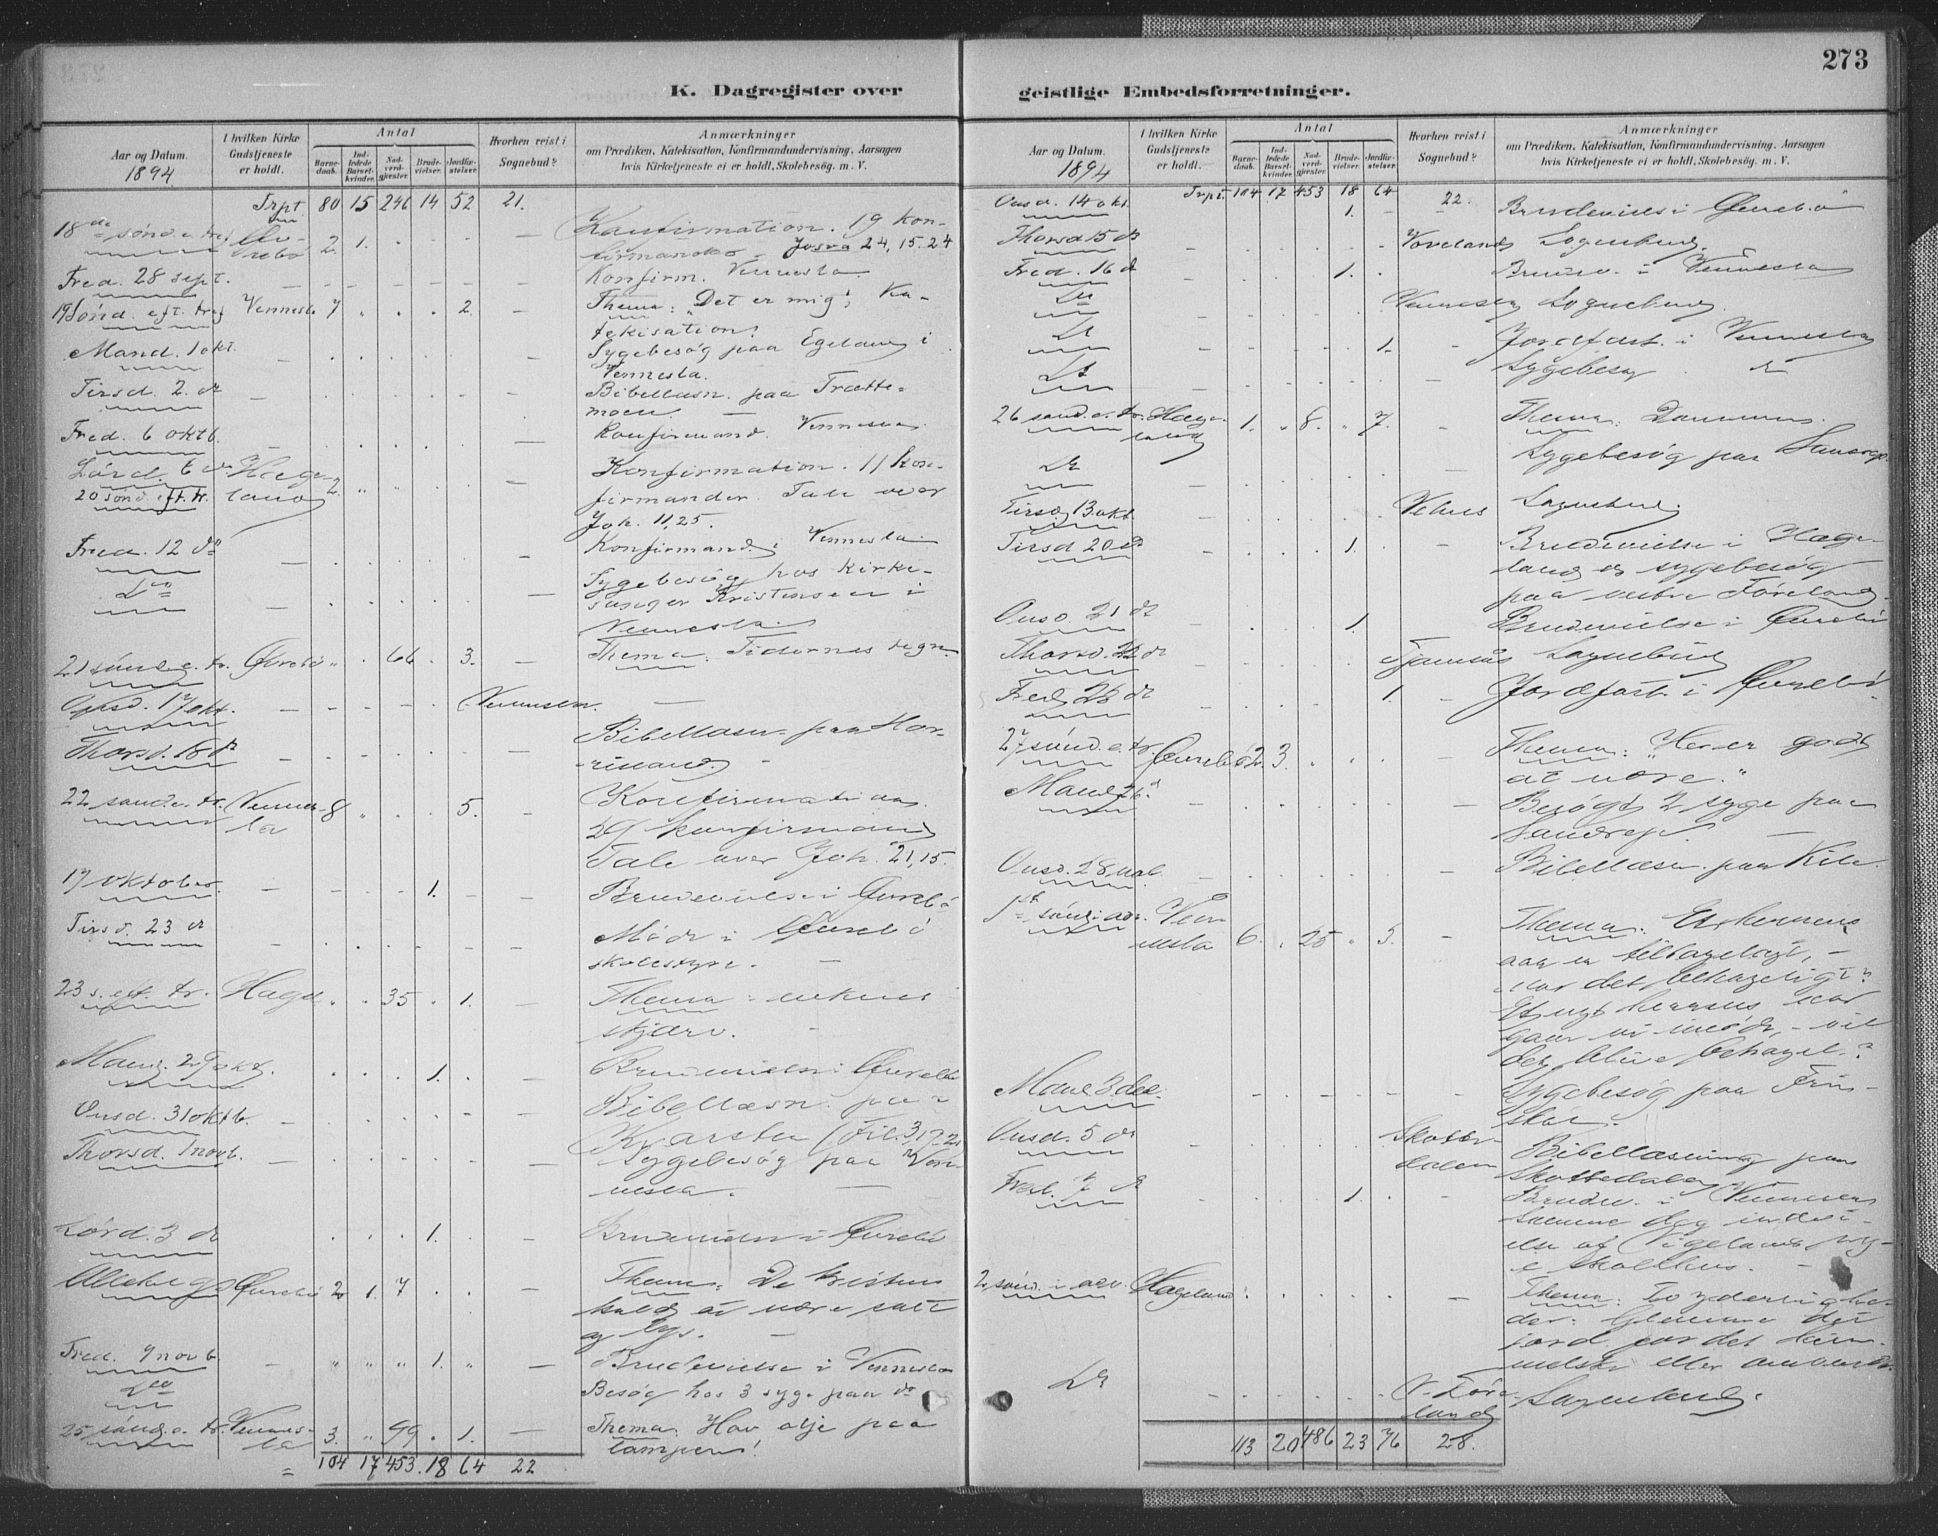 273
K. Dagregister over geistlige Embedsforretninger.
Aar og Datum. 1894
I hvilken Kirke Gudstjeneste er holdt.
Antal
Barne-daab. Ind-ledede Barsel-kvinder. Nad-verd-gjæster. Brude-vielser. Jordfæ-stelser.
Hvorhen reist i Sognebud?
Anmærkninger
om Prædiken, Katekisation, Konfirmandundervisning, Aarsagen
hvis Kirketjeneste ei er holdt, Skolebesøg. m. V.
Trpt. 80 15 246 14 52 21.
18de sønd. e. tref. 2. 1. Konfirmation. 19 kon-
firmander. Josva 24, 15. 24
Fred. 28 sept. Konfirm. Vennesla
19 Sønd. eft. tref Vennesla 7 2. Thema: "Det er mig". Ka-
tekisation.
Mand. 1 okt. Sygebesøg paa Egeland i
Vennesla.
Tirsd. 2. d Bibellæsn. paa Trætte-
moen.
Fred. 6 oktb. Konfirmand. Vennesla
Lørd. 6 d Hæge- 2. Konfirmation. 11 kon-
20 sønd. eft. tr. land firmander. Tale over
Joh. 11,25.
Fred. 12 do Konfirmand. i Vennesla
Do Sygebesøg hos kirke-
sanger Kristensen i
Vennesla
21 sønd. e. tr. Øvrebø 66 3. Thema: Tidernes tegn.
Onsd. 17 okt. Vennesla
Thorsd. 18 d Bibellæsn. paa Hor-
risland.
22 sønd. e. tr. Vennes- 8 5. Konfirmation.
la 29 konfirmand.
Tale over Joh. 21,15.
17 oktober 1. Brudevielse i Øvrebø
Tirsd. 23 d Møde i Øvrebø
skolestyre.
23 s. eft. tr. Hægel. 35 1. Thema: enkens
skjærv.
Mand. 29 okt. 1. Brudevielse i Øvrebø
Onsd. 31 oktb. Bibellæsn. paa
Thorsd. 1 novb. Sygebesøg paa Ven-
nesla.
Lørd. 3 d 1. Brudevielse i Øvrebø
Allehelg. Øvrebø 2 1. 7 Thema: De kristnes
kald at være salt
og lys.
Fred. 9 novb 1. Brudevielse i Vennesla
Do Besøg hos 3 syge paa do
25 sønd. e. tr. Vennes- 3. 99 1. Thema: Hav olje paa
la lampen!
104 17 453. 18 64 22
Aar og Datum. 1894
I hvilken Kirke Gudstjeneste er holdt.
Antal
Barne-daab. Ind-ledede Barsel-kvinder. Nad-verd-gjæster. Brude-vielser. Jordfæ-stelser.
Hvorhen reist i Sognebud?
Anmærkninger
om Prædiken, Katekisation, Konfirmandundervisning, Aarsagen
hvis Kirketjeneste ei er holdt, Skolebesøg. m. V.
Trpt. 104 17 453 18 64 22.
Onsd. 14 okt. 1. Brudevielse i Øvrebø
Thorsd 15 d Sognebud.
Fred. 16 d 1. Brudev. i Vennesla
Do Vennesla Sognebud.
Do 1. Jordfæst. i Vennesla
Do Sygebesøg d
26 sønd. e. tr. Hæge- 1. 8. 7. Thema: Dommen.
land
Do Sygebesøg paa
Tirsd. 13. okt. Sognebud.
Tirsd 20 d 1. Brudevielse i Hæge-
land og sygebesøg
paa vestre Føreland
Onsd. 21 d 1. Brudevielse i Øvrebø
Thorsd. 22 d Sognebud
Fred. 23 d 1. Jordfæst. i Øvrebø
27 sønd. e. tr. Øvrebø 2. 3. Thema: "Her er godt
at være."
Mand. 26 d Besøgt 2 syge paa
Onsd. 28 nov. Bibellæsn. paa Kile.
1st sønd. i adv. Ven- Thema: Et Herrens
nesla 6. 25 5. aar er tilbagelagt, -
var det behageligt?
Et nyt herrens aar
gaar vi imøde, - vil
det blive behagel.?
Mand 3 dec. Sygebesøg paa
Onsd. 5 d Skotte- Bibellæsning paa
dalen Skottedalen
Fred. 7 d 1. Brudev. i Vennesla
Samme dag indvi-
else af Vigelands ny-
e skolehus.
2. sønd. i adv. Hægeland Thema: To yderlighe-
der: Glemme den
jord for det him-
melske eller omvendt.
Do V. Føre- Sognebud.
land
113 20 486 23 76 28.